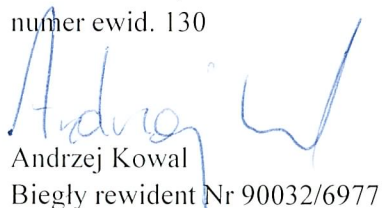 numer ewid. 130
Andrzej K
Andrzej Kowal
Biegły rewident Nr 90032/6977